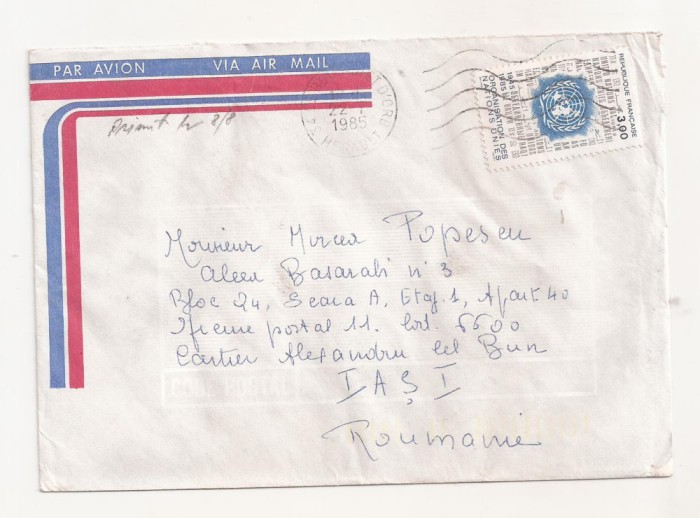 PAR AVION VIA AIR MAIL
RÉPUBLIQUE FRANÇAISE
3,00
1945
1985
ORGANISATION DES
NATIONS UNIES
22-7
1985
Primit în 2/8
Monsieur Mircea Popescu
Aleea Basarabi n° 3
Bloc 24, Scara A, Etaj 1, Apart 40
postal 11. Cod. 6600
Cartier Alexandru cel Bun
IAŞI
Roumanie
CODE POSTAL